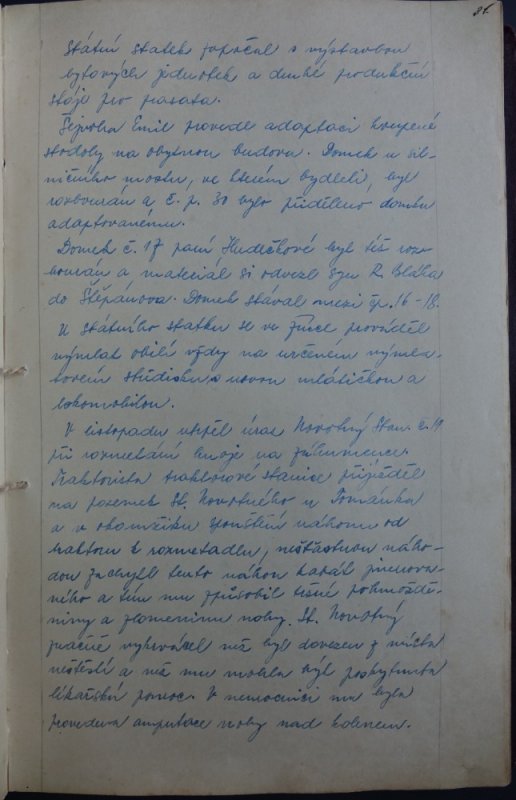 81.
Státní statek započal s výstavbou
bytových jednotek a druhé produkční
stáje pro prasata.
Šejnoha Emil provede adaptaci koupené
stodoly na obytnou budovu. Domek u sil-
ničního mostu, ve kterém bydleli, byl
rozbourán a č. p. 30 bylo přiděleno domku
adaptovanému.
Domek č. 17 paní Hudečkové byl též roz-
bourán a materiál si odvezl syn R. Bláha
do Štěpánova. Domek stával mezi čp. 16 - 18.
U státního statku se ve žních prováděl
výmlat obilí vždy na určeném výmla-
tovém středisku s novou mlátičkou a
lokomobilou.
V listopadu utrpěl úraz Novotný Stan. č. 11
při rozmetání hnoje na záhumence.
Traktorista traktorové stanice přijížděl
na pozemek St. Novotného u Tománka
a v okamžiku spouštění náhonu od
traktoru k rozmetadlu, nešťastnou náho-
dou zachytil tento náhon kabát jmenova-
ného a tím mu způsobil těžké pohmoždě-
niny a zlomeninu nohy. St. Novotný
značně vykrvácel než byl dovezen z místa
neštěstí a než mu mohla být poskytnuta
lékařská pomoc. V nemocnici mu byla
provedena amputace nohy nad kolenem.